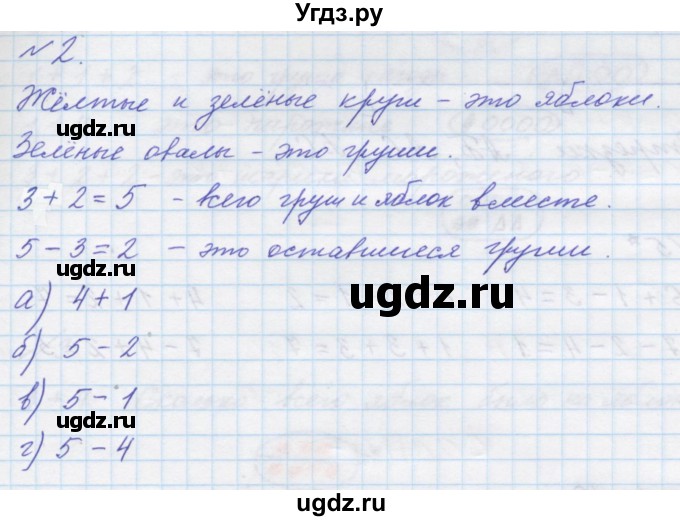 Угдз.ру
№ 2.
Жёлтые и зелёные круги – это яблоки.
ugdz.ru
ugdz.ru
Зелёные овалы – это груши.
3 + 2 = 5 – всего груш и яблок вместе.
5 – 3 = 2 – это оставшиеся груши.
а) 4 + 1
ugdz.ru
б) 5 – 2
ugdz.ru
ugdz.ru
в) 5 – 1
г) 5 – 4
ugdz.ru